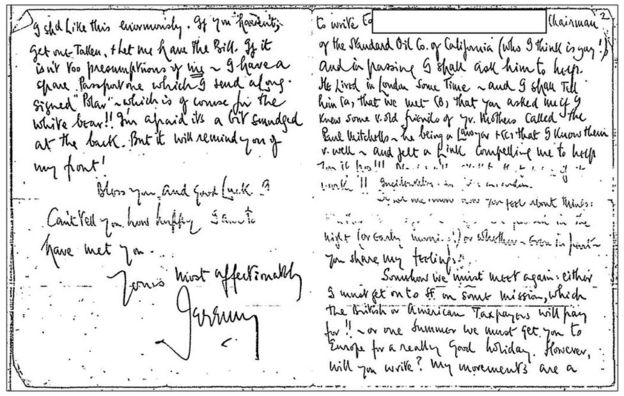 I shd Like this enormously. If you haven't,
get one Taken, & let me have the Bill. If it
isn't too presumptious of me ~ I have a
spare Passport one which I send along.
signed "Polar" ~ which is of course for the
white bear!! I'm afraid its a bit smudged
at the back. But it will remind you of
my front!
Bless you, and Good Luck
Can't tell you how happy I am to
have met you.
Yours most affectionately
Jeremy
2
to write to Chairman
of the Standard Oil Co. of California (who I think is gay!)
and in passing I shall ask him to help.
He lived in London Some Time ~ and I shall Tell
him (a) that we met (b) that you asked me if I
knew some v. old friends of yr. Mothers called The
Paul Mitchells ~ he being a Lawyer & (c) that I know them
v. well ~ and felt a Link compelling me to help
you feel about things:
night (or early morning!) or whether ~ even in part ~
you share my feelings.
Somehow we must meet again: either
I must get on to on some mission, which
the British or American Taxpayers will pay
for!! ~ or one Summer we must get you to
Europe for a really Good holiday. However,
will you write? My movements are a